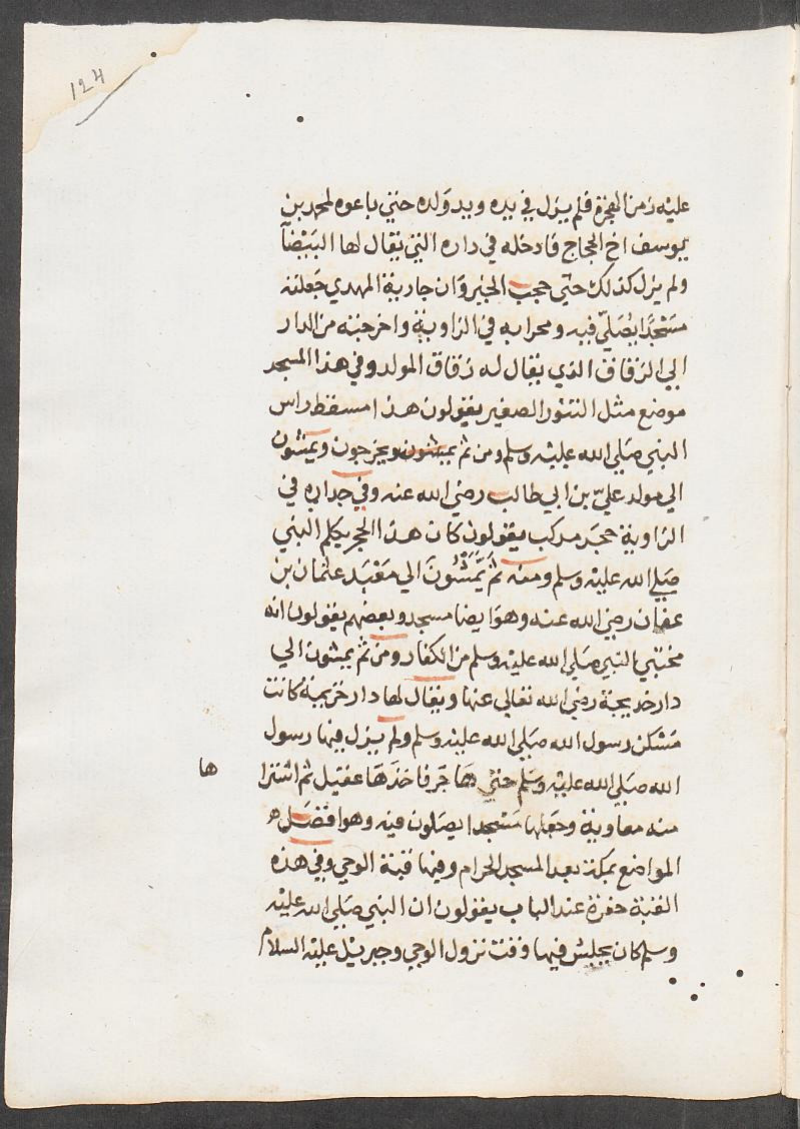 124
عليه زمن الهجرة فلم يزل في يده ويد ولده حتي باعوه لمحمد بن
يوسف اخ الحجاج فادخله في داره التي يقال لها البيضآ
ولم يزل كذلك حتي حجب الخيزران جارية المهدي جعلته
مسجدًا يصلي فيه ومحرابه في الزاوية واخرجته من الدار
الي الزقاق الذي يقال له زقاق المولد وفي هذا المسجد
موضع مثل التنور الصغير يقولون هذا مسقط راس
النبي صلي الله عليه وسلم ومن ثم يمشون ويخرجون ويمشون
الي مولد عليّ بن ابي طالب رضي الله عنه وفي جداره في
الزاوية حجر مركب يقولون كان هذا الحجر يكلم النبي
صلي الله عليه وسلم ومنه ثم يمشون الي معبد عثمان بن
عفان رضي الله عنه وهو ايضا مسجد وبعضهم يقولون انه
مختبي النبي صلي الله عليه وسلم من الكفار ومن ثم يمشون الي
دار خديجة رضي الله تعالي عنها ويقال لها دار خزيمة كانت
مسكن رسول الله صلي الله عليه وسلم ولم يزل فيها رسول
الله صلي الله عليه وسلم حتي هاجر فاخذها عقيل ثم اشترا
ها
منه معاوية وجعلها مسجدا يصلون فيه وهو افضل
المواضع بمكة بعد المسجد الحرام وفيها قبة الوحي وفي هذه
القبة حفرة عند الباب يقولون ان النبي صلي الله عليه
وسلم كان يجلس فيها وقت نزول الوحي وجبريل عليه السلام